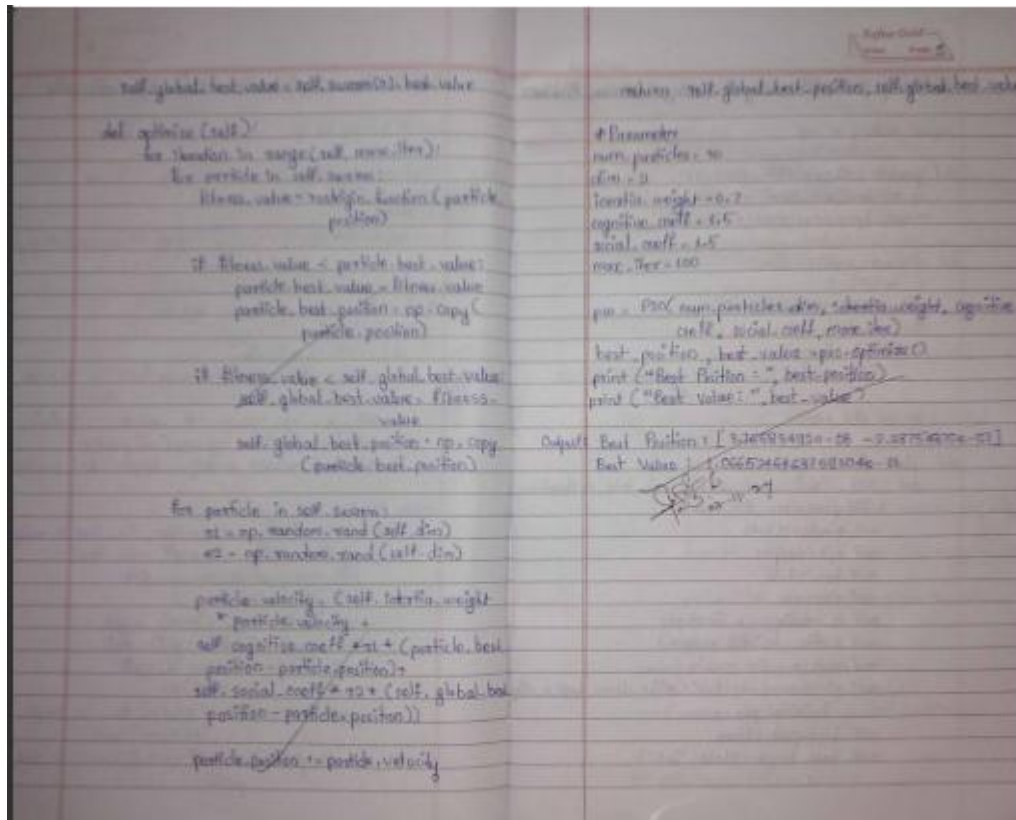 self.global_best_value = self.swarm[0].best_value
def optimize(self):
for iteration in range(self.max_iter):
for particle in self.swarm:
fitness_value = rastrigin_function(particle.
position)
if fitness_value < particle.best_value:
particle.best_value = fitness_value
particle.best_position = np.copy(
particle.position)
if fitness_value < self.global_best_value
self.global_best_value = fitness_
value
self.global_best_position = np.copy
(particle.best_position)
for particle in self.swarm:
r1 = np.random.rand(self.dim)
r2 = np.random.rand(self.dim)
particle.velocity = (self.inertia_weight
* particle.velocity +
self.cognitive_coeff * r1 * (particle.best_
position - particle.position) +
self.social_coeff * r2 * (self.global_best
position - particle.position))
particle.position += particle.velocity
return self.global_best_position, self.global_best_value
# Parameter
num_particles = 30
dim = 2
inertia_weight = 0.7
cognitive_coeff = 1.5
social_coeff = 1.5
max_iter = 100
pso = PSO(num_particles, dim, inertia_weight, cognitive
coeff, social_coeff, max_iter)
best_position, best_value = pso.optimize()
print("Best Position:", best_position)
print("Best Value:", best_value)
Output: Best Position:
Best Value: